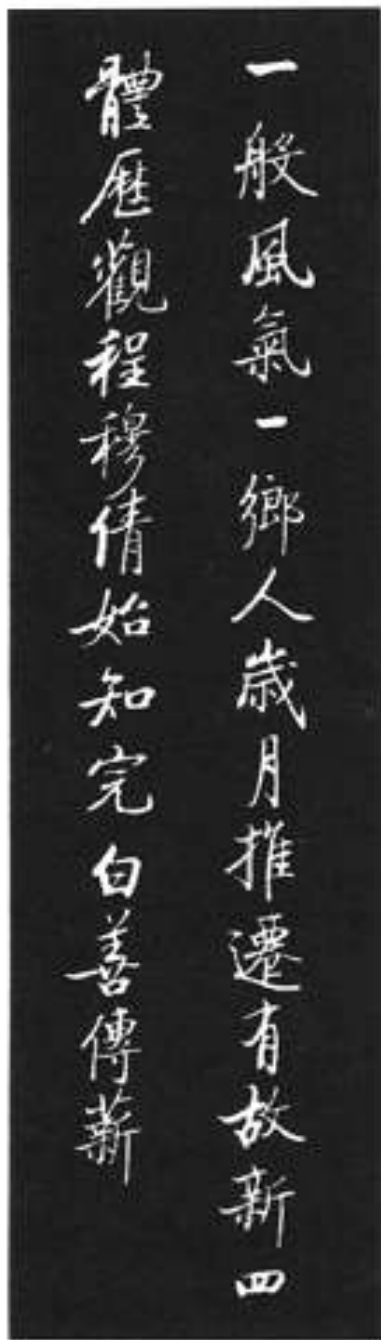 一般風氣一鄉人歲月推遷有故新四
體歷觀程穆倩始知完白善傳薪